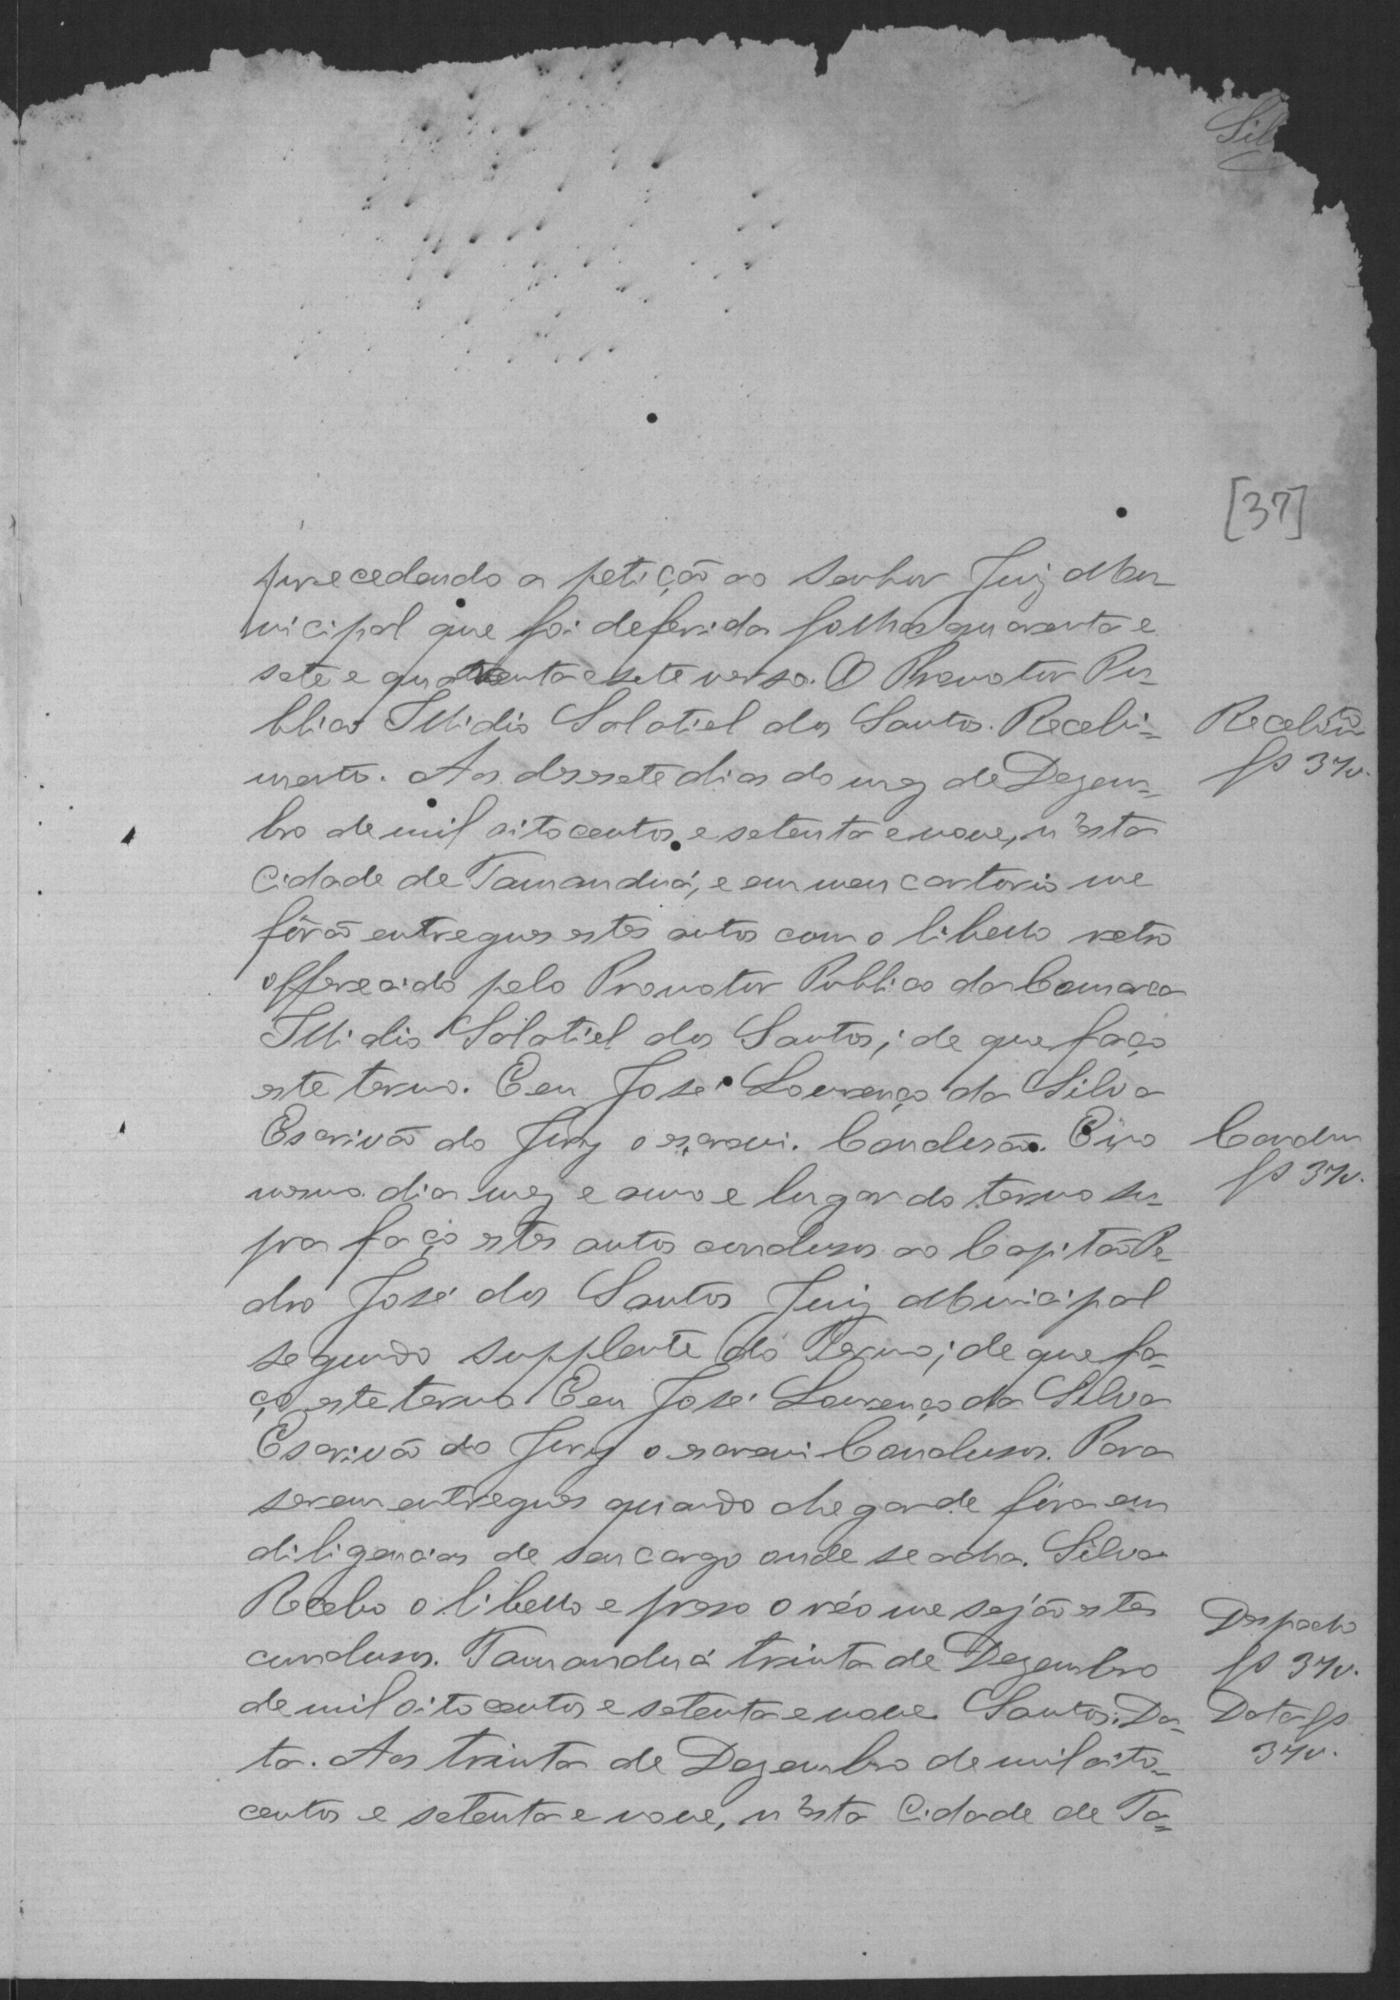 Sil
[37]
precedendo a petição ao Senhor Juiz Mu-
nicipal que foi deferida folhas quarenta e
sete e quarenta e sete verso. O Promotor Pu-
blico Illidio Salatiel dos Santos. Recebi- Recebito
mento. Aos desesete dias do mez de Dezem- fs 37v.
bro de mil oitocentos e setenta e nove, n'esta
Cidade de Tamanduá, e em meu cartorio me
fôrão entregues estes autos com o libello retro
offerecido pelo Promotor Publico da Comarca
Illidio Salatiel dos Santos; de que faço
este termo. E eu José Lourenço da Silva
Escrivão do Jury o escrevi. Conclusão. E no Conclu
mesmo dia mez e anno e lugar do termo su- fs 37v.
pra faço estes autos conclusos ao Capitão Pe-
dro José dos Santos Juiz Municipal
segundo supplente do Termo; de que fa-
ço este termo E eu José Lourenço da Silva
Escrivão do Jury o escrevi Conclusos. Para
serem entregues quando chegar de fóra em
diligencias de seu cargo onde se acha. Silva
Recebo o libello e preso o réo me sejão estes Despacho
conclusos. Tamanduá trinta de Dezembro fs 37v.
de mil oitocentos e setenta e nove. Santos. Da- Data fs
ta. Aos trinta de Dezembro de mil oito- 37v.
centos e setenta e nove, n'esta Cidade de Ta-